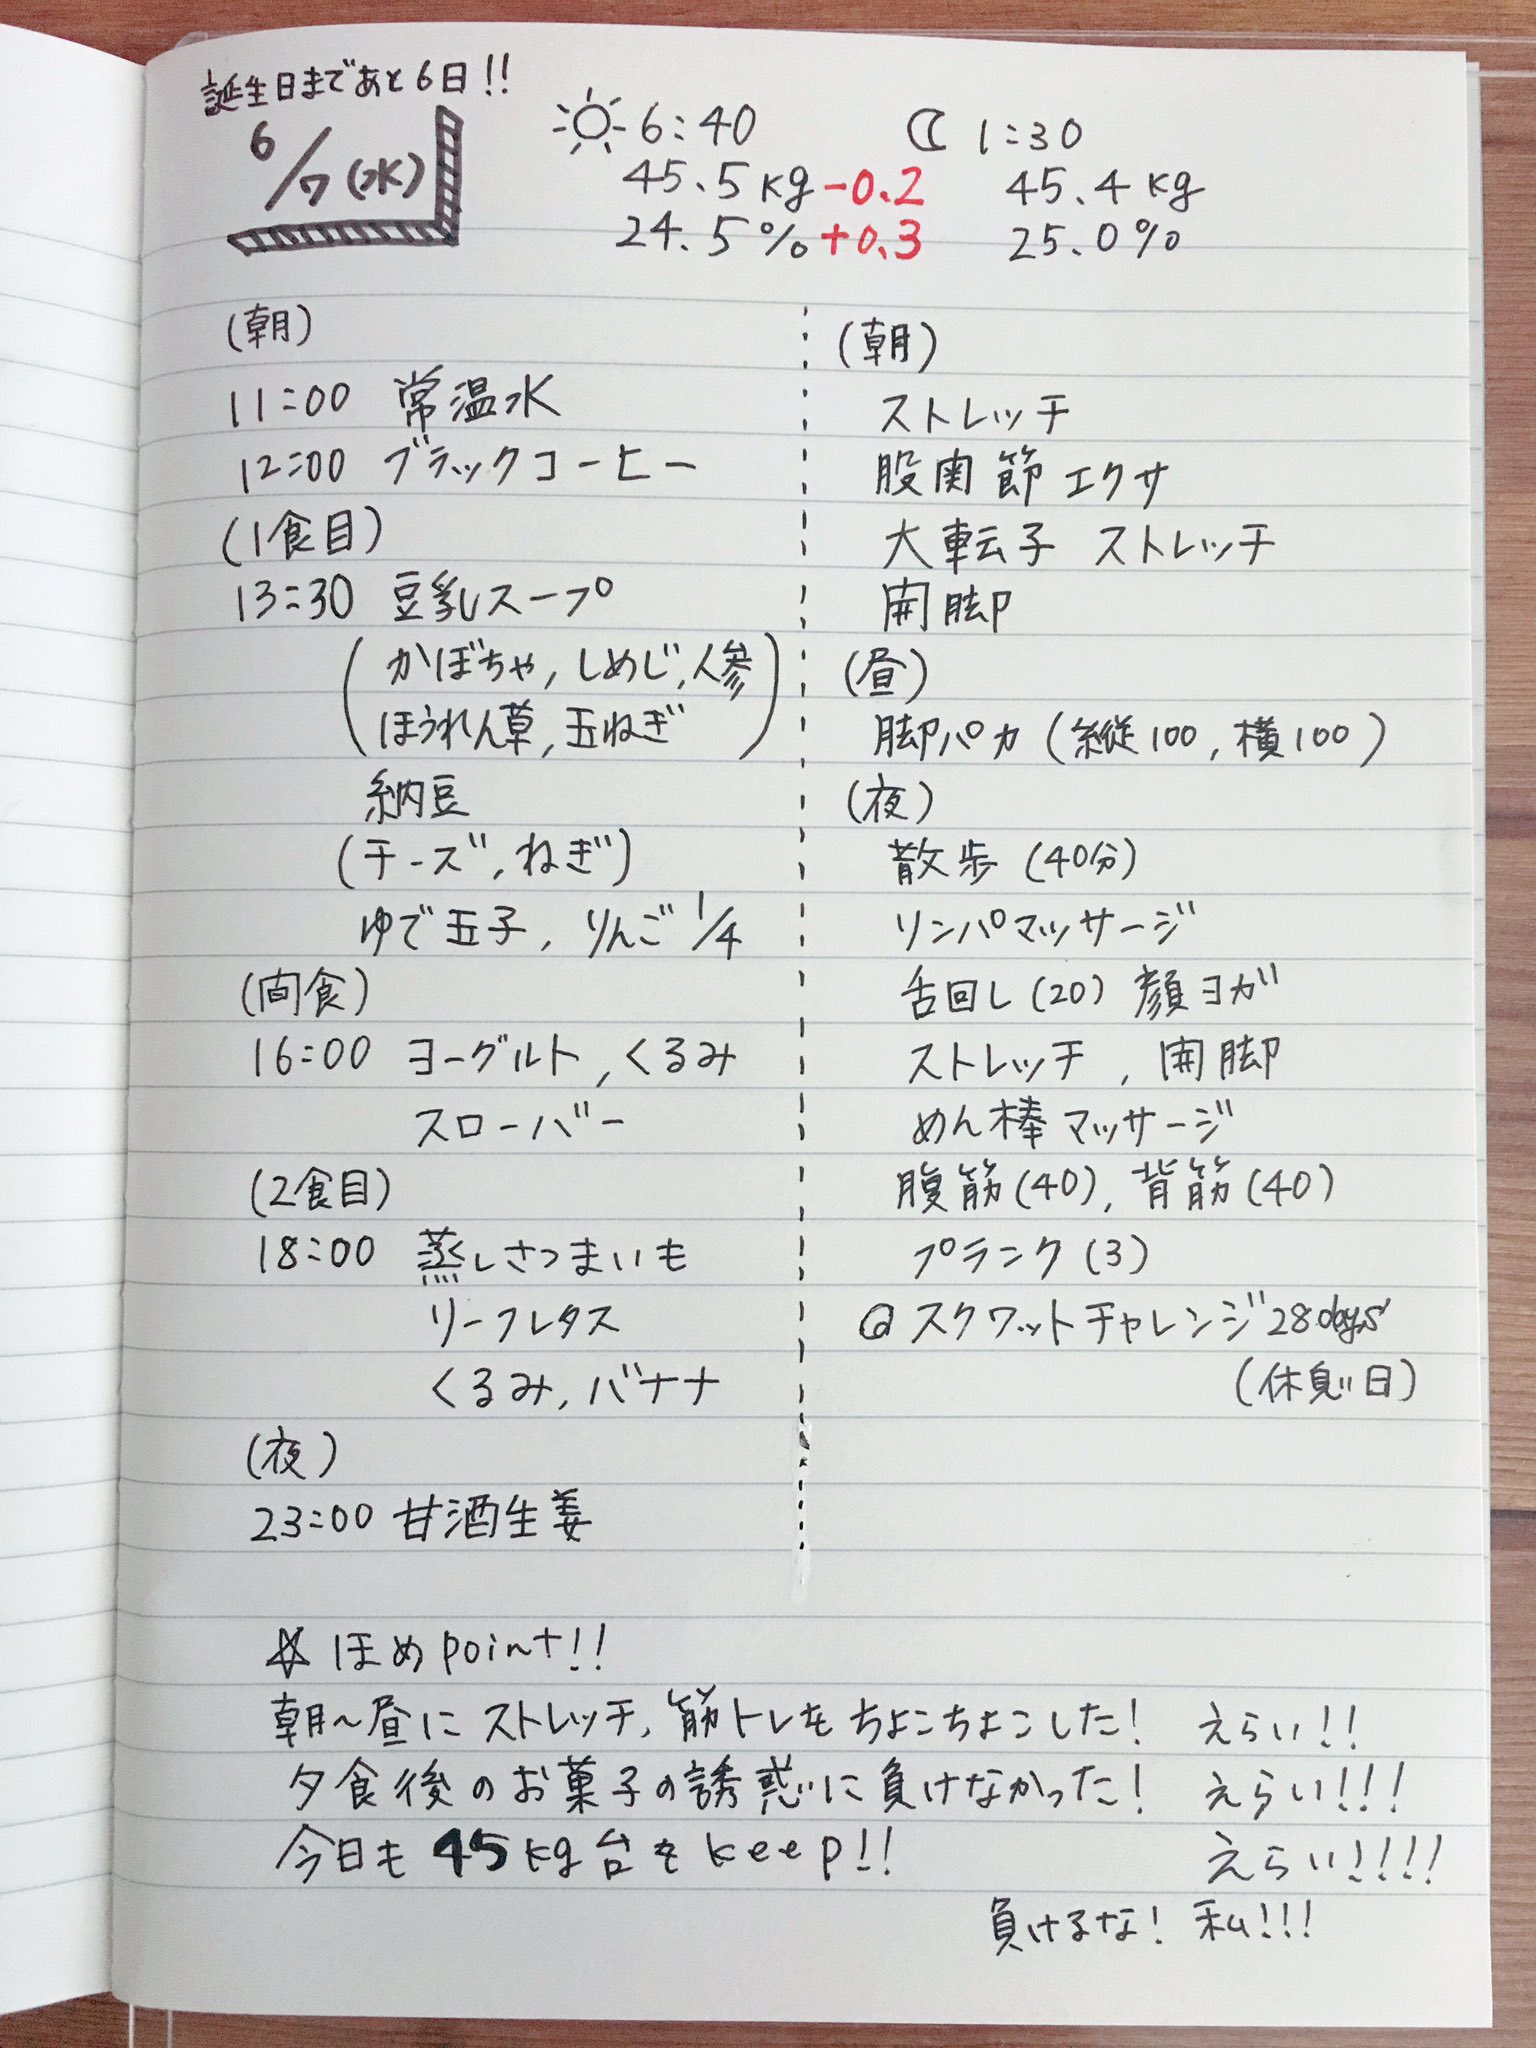 誕生日まであと6日!!
6/7(水)
6:40
45.5kg-0.2
24.5%+0.3
1:30
45.4kg
25.0%
(朝)
11:00 常温水
12:00 ブラックコーヒー
(1食目)
13:30 豆乳スープ
(かぼちゃ,しめじ,人参
ほうれん草,玉ねぎ)
納豆
(チーズ,ねぎ)
ゆで玉子, りんご1/4
(間食)
16:00 ヨーグルト,くるみ
スローバー
(2食目)
18:00 蒸しさつまいも
リーフレタス
くるみ,バナナ
(夜)
23:00 甘酒生姜
(朝)
ストレッチ
股関節エクサ
大転子 ストレッチ
開脚
(昼)
脚パカ(縦100,横100)
(夜)
散歩(40分)
リンパマッサージ
舌回し(20) 顔ヨガ
ストレッチ, 開脚
めん棒マッサージ
腹筋(40), 背筋(40)
プランク(3)
@スクワットチャレンジ28days
(休息日)
☆ほめpoint!!
朝~昼にストレッチ,筋トレをちょこちょこした! えらい!!
夕食後のお菓子の誘惑に負けなかった! えらい!!!
今日も45kg台をkeep!! えらい!!!!
負けるな! 私!!!